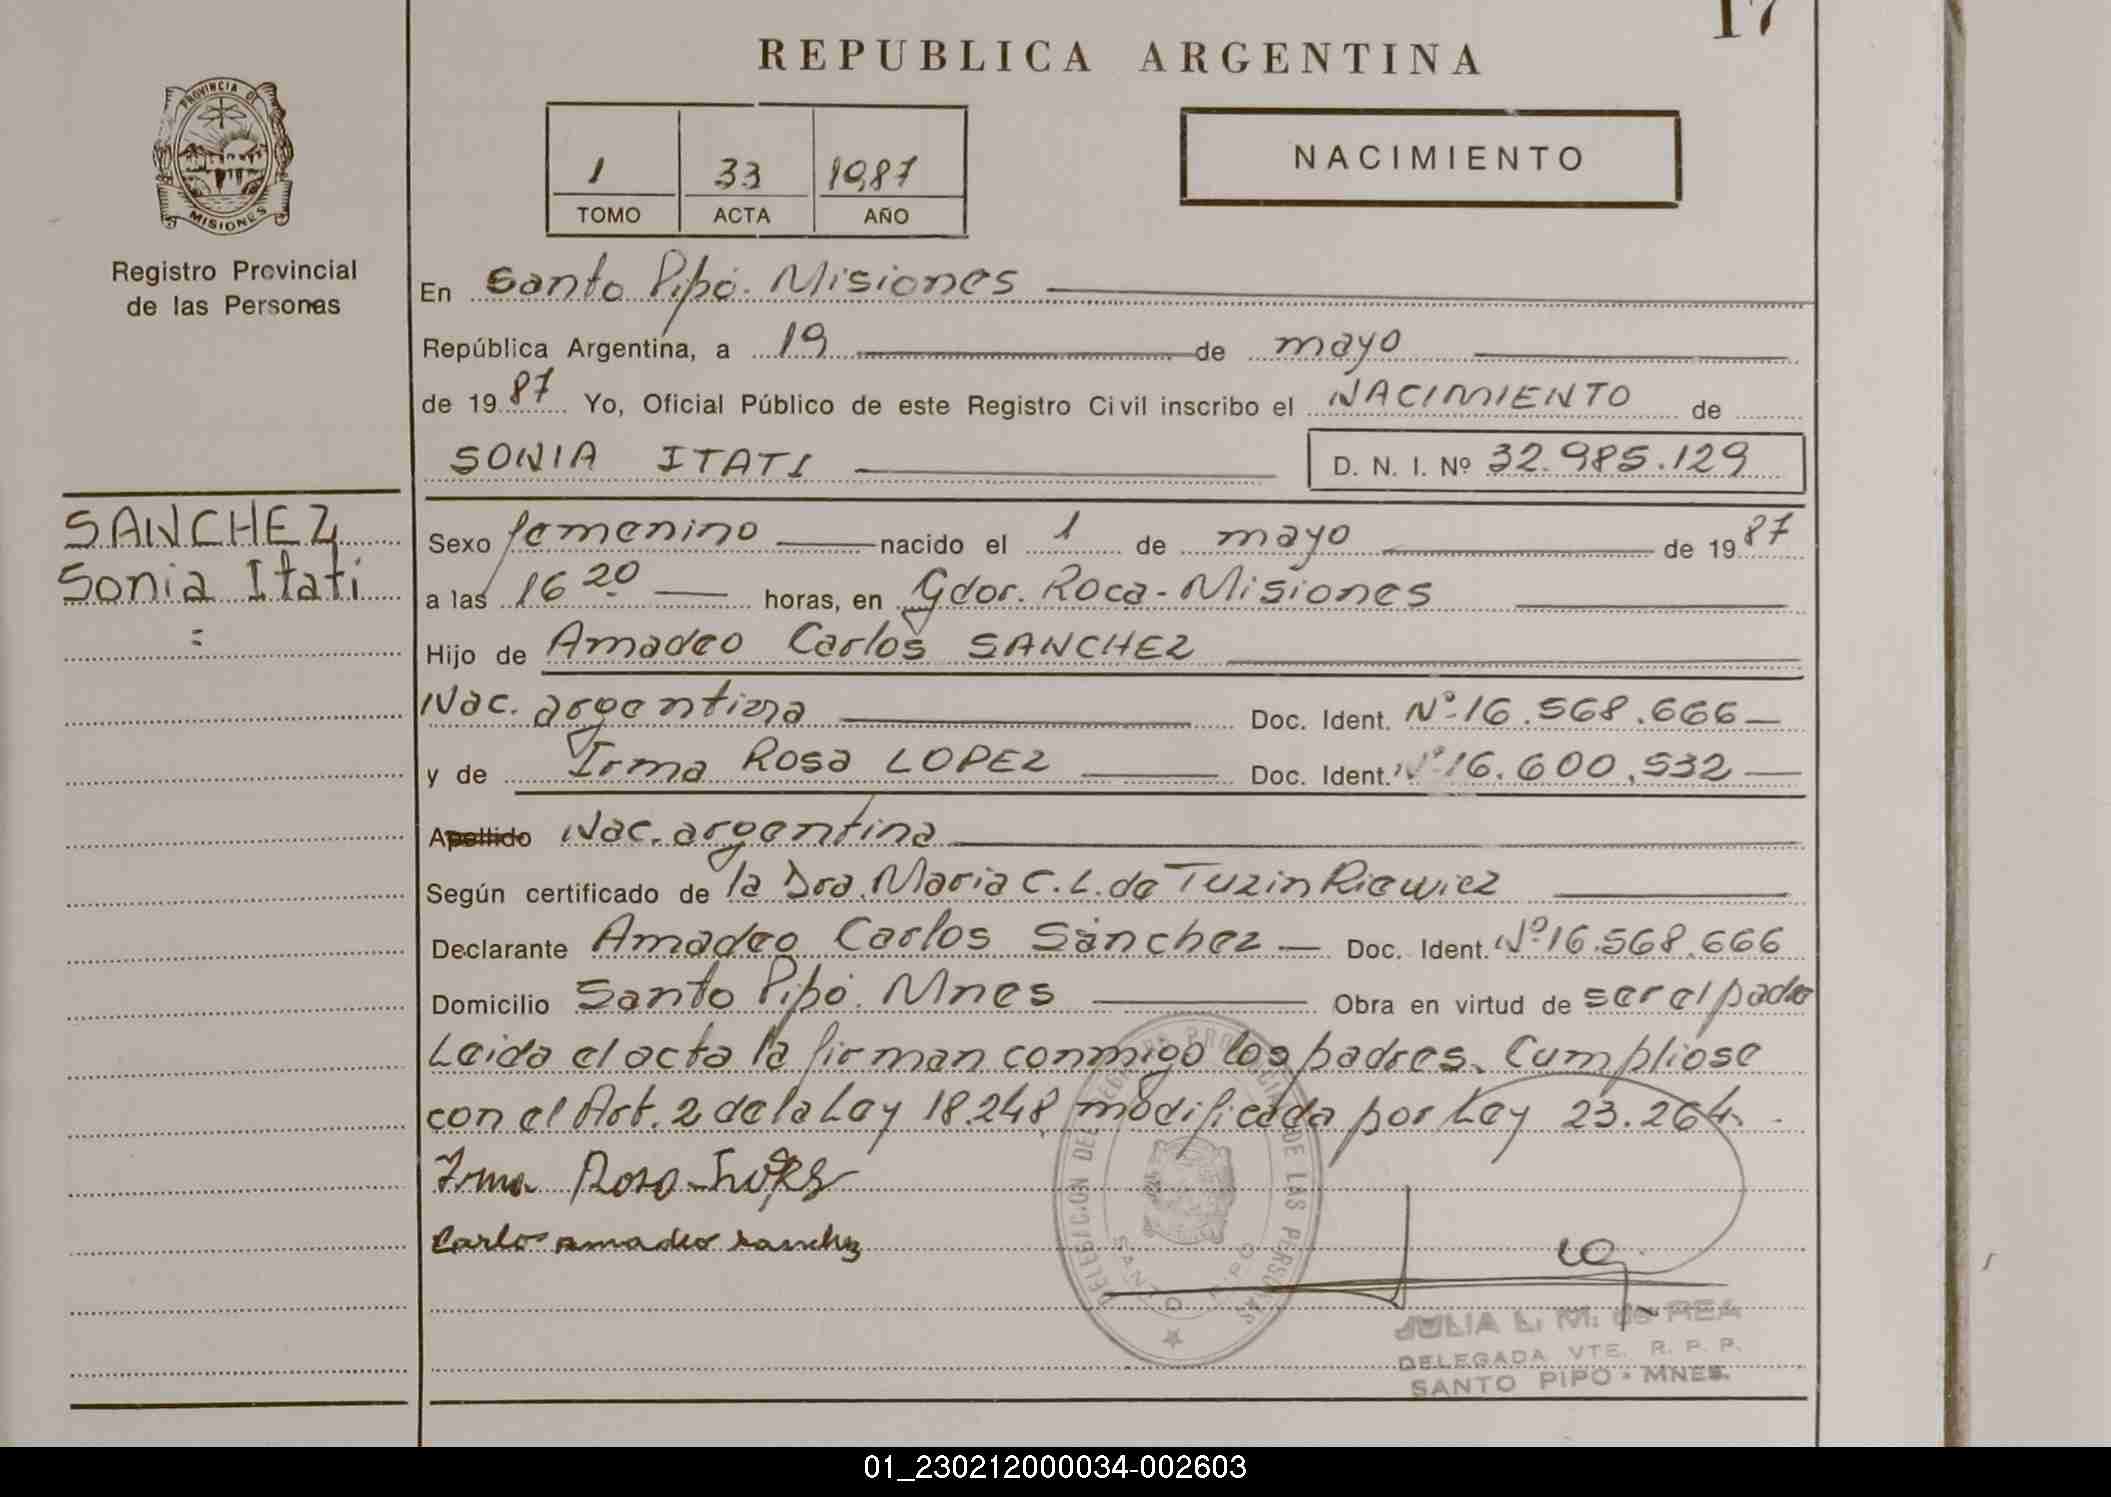 17
REPUBLICA ARGENTINA
PROVINCIA DE
MISIONES
Registro Provincial
de las Personas
1 33 1987
TOMO ACTA AÑO
NACIMIENTO
En Santo Pipó. Misiones
República Argentina, a 19 de mayo
de 1987 Yo, Oficial Público de este Registro Civil inscribo el NACIMIENTO de
SONIA ITATI D. N. I. Nº 32.985.129
SANCHEZ
Sonia Itatí
Sexo femenino nacido el 1 de mayo de 1987
a las 16 20 horas, en Gdor. Roca - Misiones
Hijo de Amadeo Carlos SANCHEZ
Nac. argentina Doc. Ident. Nº 16.568.666
y de Irma Rosa LOPEZ Doc. Ident. Nº 16.600.532
Apellido Nac. argentina
Según certificado de la Dra. Maria C. L. de TuzinKiewicz
Declarante Amadeo Carlos Sánchez Doc. Ident. Nº 16.568.666
Domicilio Santo Pipó. Mnes Obra en virtud de ser el padre
Leida el acta la firman conmigo los padres. Cumpliose
con el Art. 2 de la Ley 18.248 modificada por Ley 23.264.
Irma Rosa López
Carlos amadeo sanchez
DELEGACION DEL REGISTRO PROVINCIAL DE LAS PERSONAS
SANTO PIPO
JULIA L. M. de REA
DELEGADA VTE. R. P. P.
SANTO PIPO - MNES.
01_230212000034-002603